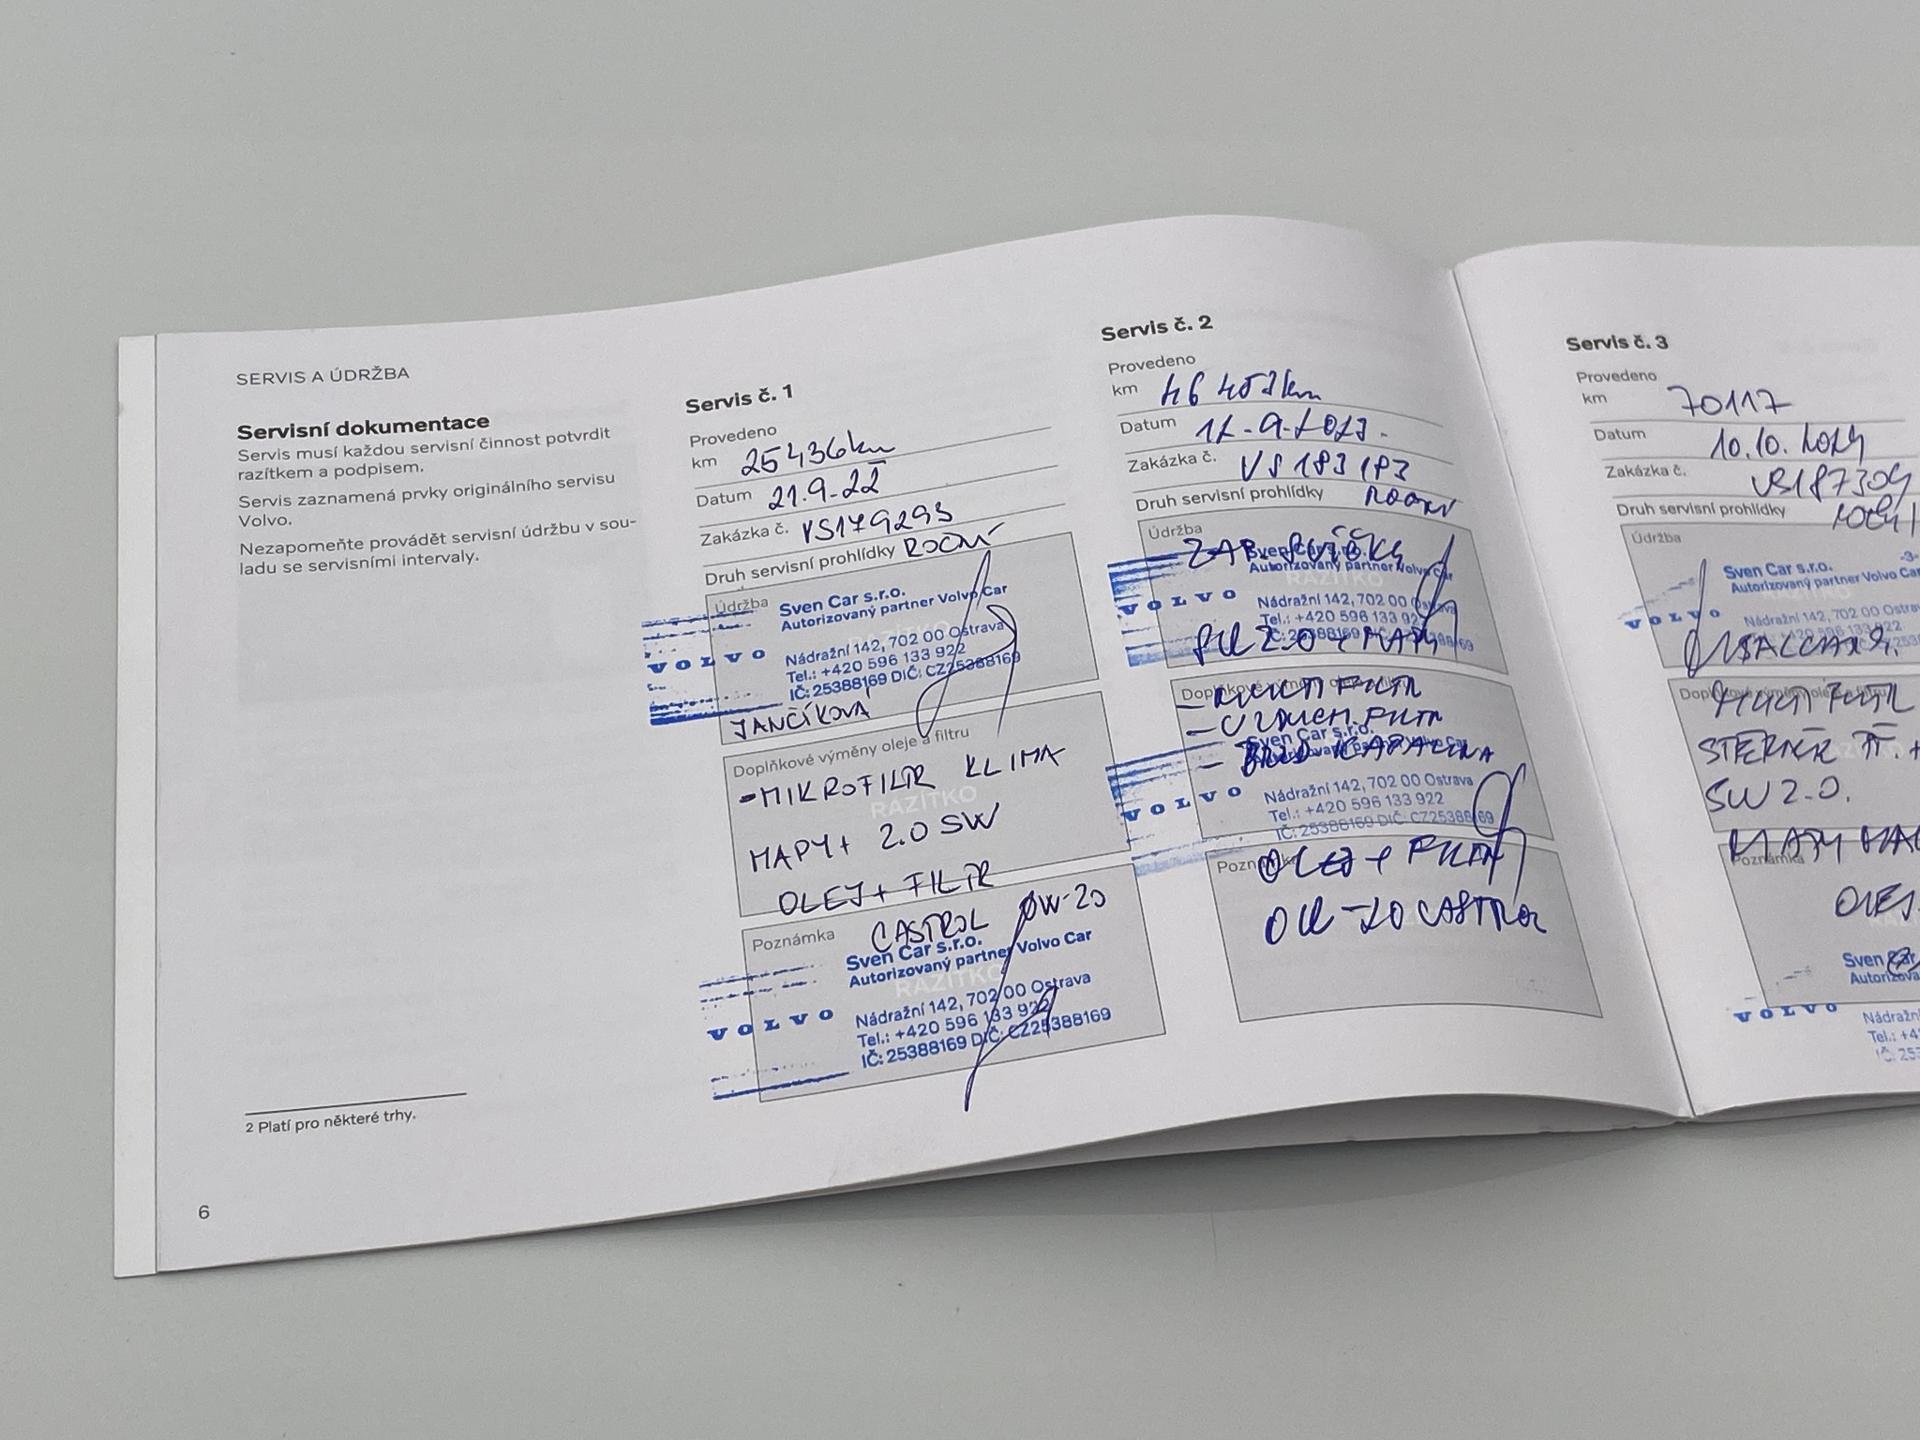 SERVIS A ÚDRŽBA
Servisní dokumentace
Servis musí každou servisní činnost potvrdit
razítkem a podpisem.
Servis zaznamená prvky originálního servisu
Volvo.
Nezapomeňte provádět servisní údržbu v sou-
ladu se servisními intervaly.
2 Platí pro některé trhy.
6
Servis č. 1
Provedeno
km 25436km
Datum 21.9.22
Zakázka č. VS179293
Druh servisní prohlídky ROČNÍ
Údržba
Sven Car s.r.o.
Autorizovaný partner Volvo Car
VOLVO
Nádražní 142, 702 00 Ostrava
Tel.: +420 596 133 922
IČ: 25388169 DIČ: CZ25388169
JANČÍKOVA
Doplňkové výměny oleje a filtru
-MIKROFILTR KLIMA
RAZÍTKO
MAPY+ 2.0 SW
OLEJ+ FILTR
Poznámka
CASTROL 0W-20
Sven Car s.r.o.
Autorizovaný partner Volvo Car
RAZÍTKO
VOLVO
Nádražní 142, 702 00 Ostrava
Tel.: +420 596 133 922
IČ: 25388169 DIČ: CZ25388169
Servis č. 2
Provedeno
km
Datum
Zakázka č. VS183183
Druh servisní prohlídky
Údržba
Sven Car s.r.o.
Autorizovaný partner Volvo Car
RAZÍTKO
VOLVO
Nádražní 142, 702 00 Ostrava
Tel.: +420 596 133 922
IČ: 25388169 DIČ: CZ25388169
Doplňkové výměny oleje a filtru
- MULTI FILTR
- VZDUCH. FILTR
Sven Car s.r.o.
Autorizovaný partner Volvo Car
VOLVO
Nádražní 142, 702 00 Ostrava
Tel.: +420 596 133 922
IČ: 25388169 DIČ: CZ25388169
Poznámka
OLEJ + FILTR
CASTROL
Servis č. 3
Provedeno
km 70117
Datum 10.10.2024
Zakázka č. VS187304
Druh servisní prohlídky
Údržba
Sven Car s.r.o. -3-
Autorizovaný partner Volvo Car
VOLVO
Nádražní 142, 702 00
Tel.: +420 596 133 922
Doplňkové výměny oleje a filtru
MULTI FILTR
SW 2.0.
Poznámka
OLEJ
Sven Car
VOLVO